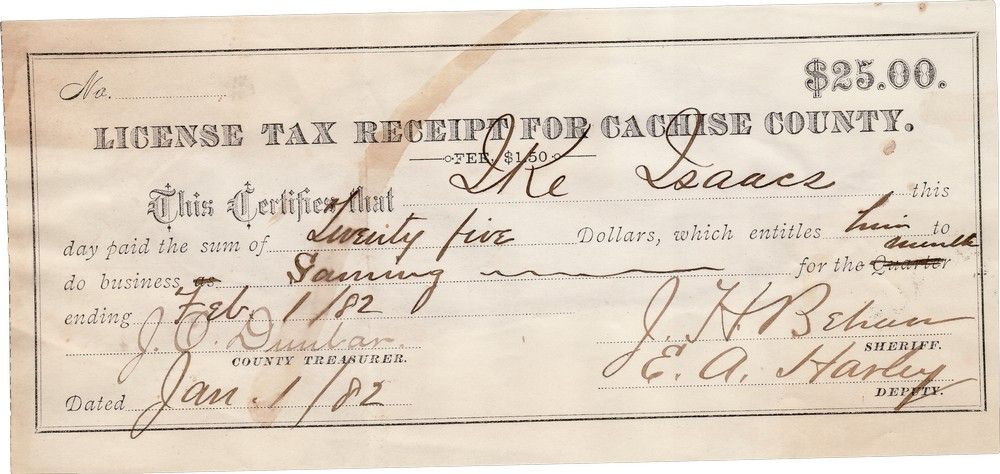 No.
$25.00.
LICENSE TAX RECEIPT FOR CACHISE COUNTY.
FEE, $1.50
This Certifies that Ike Isaacs this
day paid the sum of Twenty five Dollars, which entitles him to
month
do business as Gaming for the Quarter
ending Feb. 1/82
J. O. Dunbar. J. H. Behan
COUNTY TREASURER. SHERIFF.
E. A. Harley
Dated Jan. 1/82 DEPUTY.